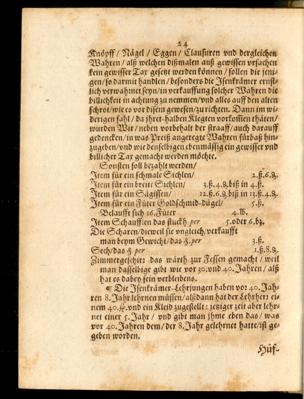 24
Knöpff / Nägel / Eggen / Clausuren vnd dergleichen
Wahren / alß welchen dißmalen auß gewissen vrsachen
kein gewisser Tax gesetzt werden können / sollen die jeni-
gen / so darmit handlen / besonders die Isenkrämer ernst-
lich verwahrnet seyn / in verkauffung solcher Wahren die
billichkeit in achtung zu nemmen / vnd alles auff den alten
schrot / wie es vor disem gewesen / zu richten. Dann im wi-
derigen fahl / da jhrethalben Klegten vorkom̃en thäten /
wurden Wir / neben vorbehalt der straaff / auch darauff
gedencken / in was Preiß angeregte Wahren fürbaß hin-
zugeben / vnd wie denselbigen ebenmässig ein gewisser vnd
billicher Tax gemacht werden möchte.
Sonsten soll bezalt werden /
Item für ein schmale Sichlen / 2.ß.6.₰.
Item für ein breite Sichlen / 3.ß.4.₰. biß in 4.ß.
Item für ein Sägissen / 12.ß.6.₰. biß in 13.ß.4.₰.
Item für ein Füter Goldschmid-dügel / 5.ß.
Belaufft sich 16. Füter 4. lb.
Item Schaufflen das stuckh per 5. oder 6. bz.
Die Scharen / dieweil sie vngleich, verkaufft
man beym Gewicht / das ₰. per 3.ß.
Sech / das ₰ per 2.ß.
Zimmergeschir: das wärth zur Fessen gemacht / weil
man dasselbige gibt wie vor 30. vnd 40. Jahren / alß
hat es dabey sein verblebens.
¶ Die Isenkrämer-Lehrjungen haben vor 40. Jah-
ren 8. Jahr lehrnen müssen / alßdann hat der Lehrherr ei-
nem 40. vnd ein Kleid zugestelt: jeniger zeit aber lehr-
net einer 5. Jahr / vnd gibt man jhme eben das / was
vor 40. Jahren dem / der 8. Jahr gelehrnet hatte / ist ge-
geben worden.
Hüf-